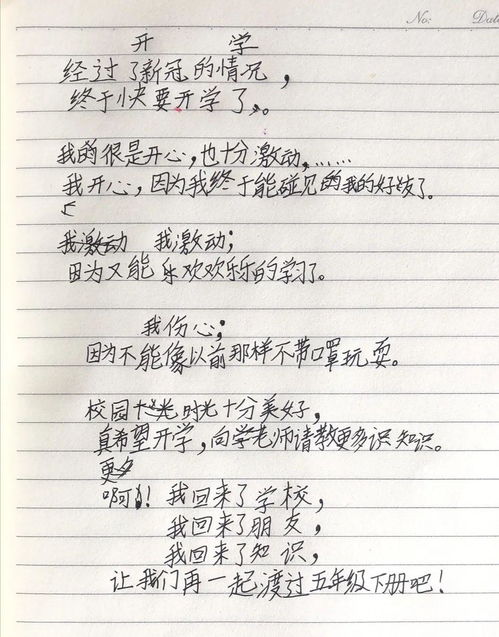 No: Data
开 学
经过了新冠的情况，
终于快要开学了，。
我的很是开心，也十分激动，……
我开心，因为我终于能碰见的我的好友了。
我激动 我激动；
因为又能乐欢欢乐乐的学习了。
我伤心；
因为不能像以前那样不带口罩玩耍。
校园 时光十分美好，
真希望开学，向学老师请教更多识知识。
更多
啊！！我回来了学校，
我回来了朋友，
我回来了知识，
让我们再一起渡过五年级下册吧！